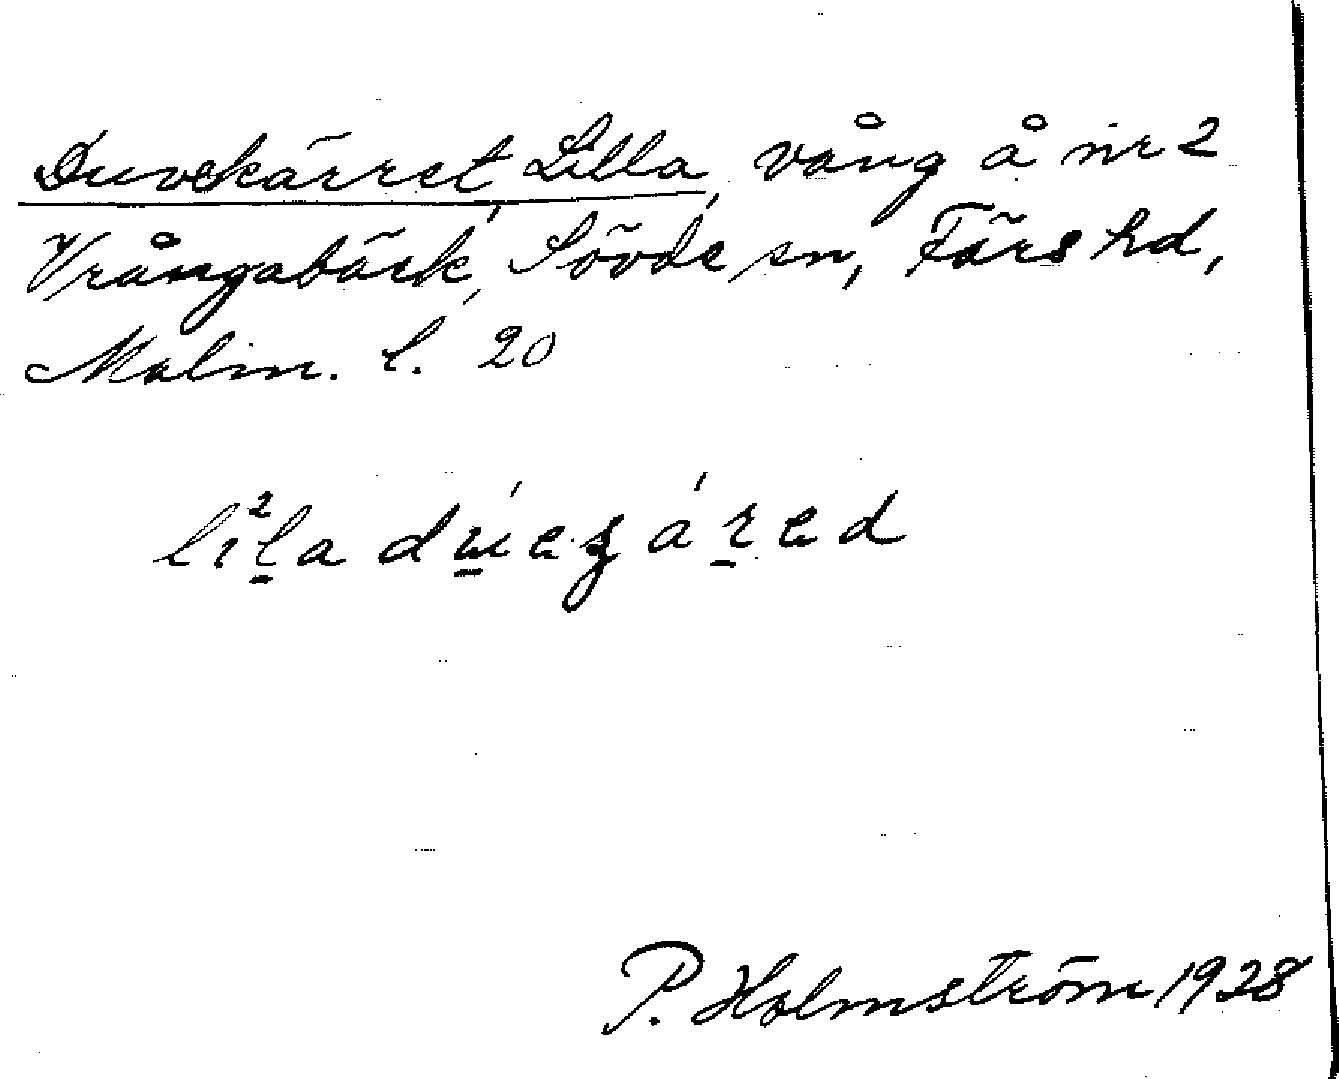 Duvekärret, Lilla, vång å nr 2
Vrångabäck, Sövde sn, Färs hd,
Malm. l. 20
P. Holmström 1928